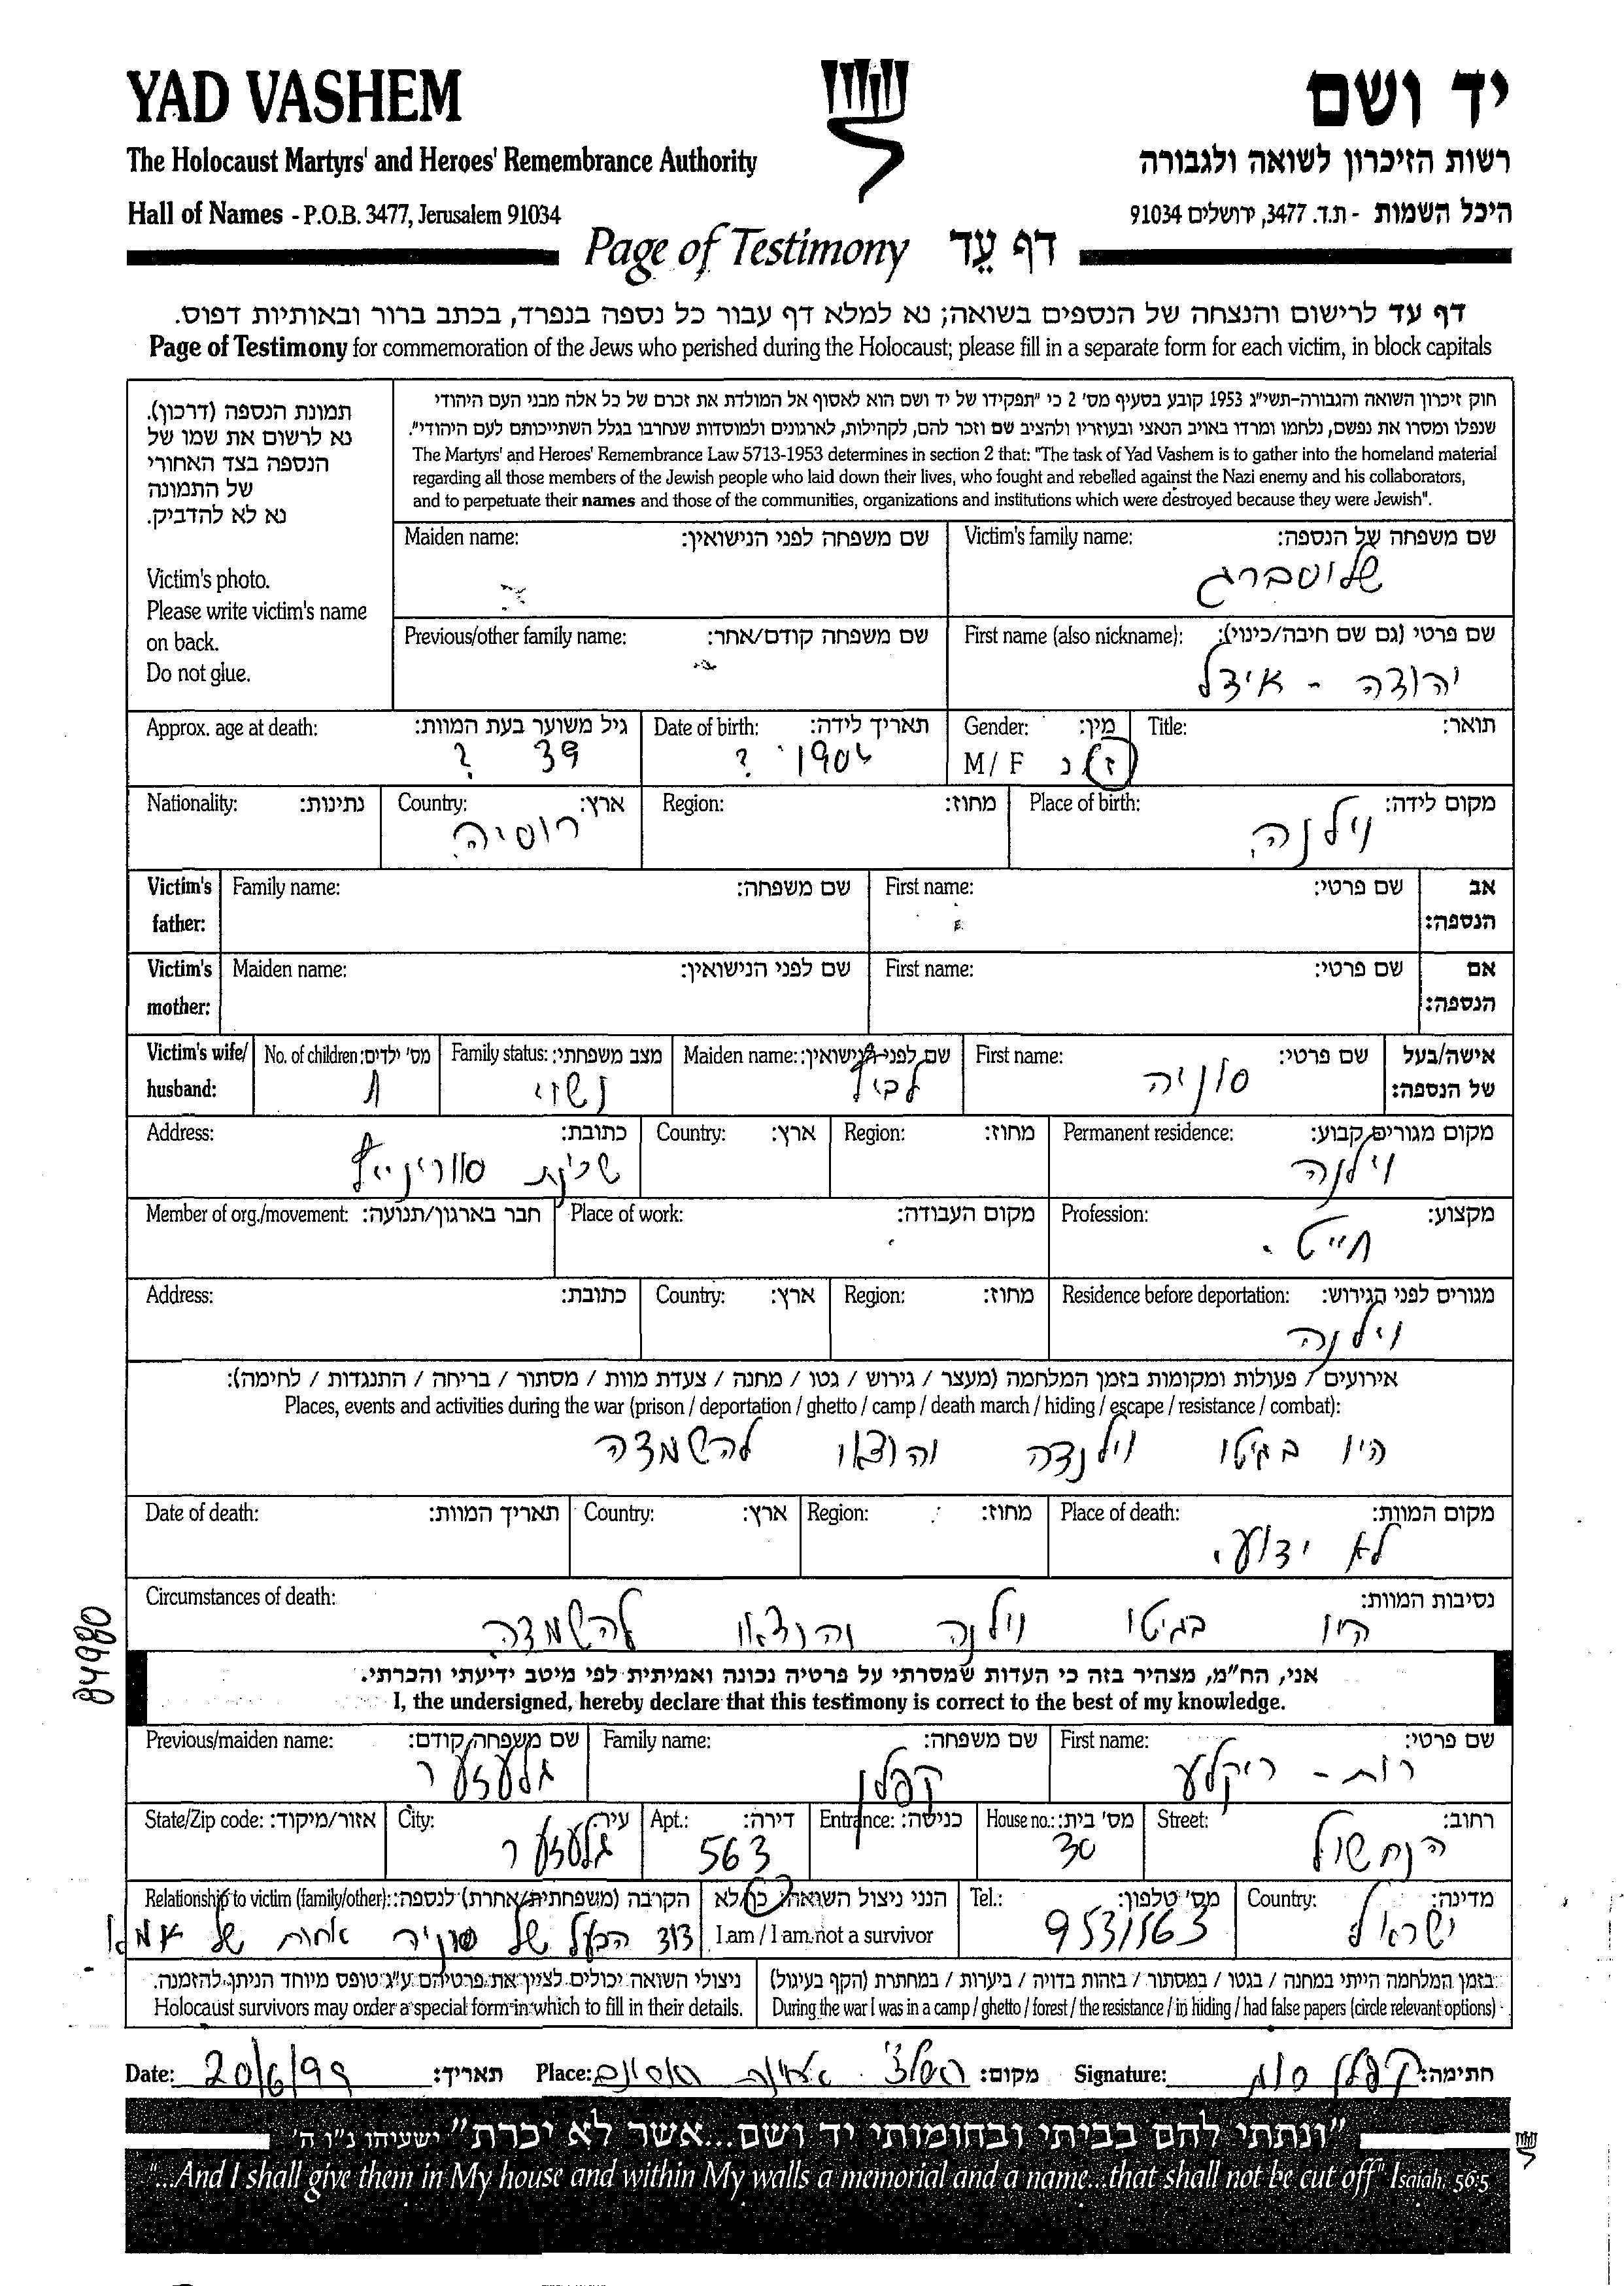 YAD VASHEM
יד ושם
The Holocaust Martyrs' and Heroes' Remembrance Authority
רשות הזיכרון לשואה ולגבורה
Hall of Names - P.O.B. 3477, Jerusalem 91034
היכל השמות - ת.ד. 3477, ירושלים 91034
Page of Testimony דף עֵד
דף עד לרישום והנצחה של הנספים בשואה; נא למלא דף עבור כל נספה בנפרד, בכתב ברור ובאותיות דפוס.
Page of Testimony for commemoration of the Jews who perished during the Holocaust; please fill in a separate form for each victim, in block capitals
תמונת הנספה (דרכון).
נא לרשום את שמו של
הנספה בצד האחורי
של התמונה
נא לא להדביק.
Victim's photo.
Please write victim's name
on back.
Do not glue.
חוק זיכרון השואה והגבורה-תשי"ג 1953 קובע בסעיף מס' 2 כי "תפקידו של יד ושם הוא לאסוף אל המולדת את זכרם של כל אלה מבני העם היהודי
שנפלו ומסרו את נפשם, נלחמו ומרדו באויב הנאצי ובעוזריו ולהציב שם וזכר להם, לקהילות, לארגונים ולמוסדות שנחרבו בגלל השתייכותם לעם היהודי".
The Martyrs' and Heroes' Remembrance Law 5713-1953 determines in section 2 that: "The task of Yad Vashem is to gather into the homeland material
regarding all those members of the Jewish people who laid down their lives, who fought and rebelled against the Nazi enemy and his collaborators,
and to perpetuate their names and those of the communities, organizations and institutions which were destroyed because they were Jewish".
Victim's family name: שם משפחה של הנספה:
שלוסברג
Maiden name: שם משפחה לפני הנישואין:
First name (also nickname): שם פרטי (גם שם חיבה/כינוי):
יהודה - אידל
Previous/other family name: שם משפחה קודם/אחר:
Title: תואר:
Gender: מין:
M / F ז/נ
Date of birth: תאריך לידה:
1904 ?
Approx. age at death: גיל משוער בעת המוות:
39 ?
Place of birth: מקום לידה:
וילנה
Region: מחוז:
Country: ארץ:
רוסיה
Nationality: נתינות:
Victim's father: אב הנספה:
First name: שם פרטי:
Family name: שם משפחה:
Victim's mother: אם הנספה:
First name: שם פרטי:
Maiden name: שם לפני הנישואין:
Victim's wife/ husband: אישה/בעל של הנספה:
First name: שם פרטי:
סוניה
Maiden name: שם לפני הנישואין:
Family status: מצב משפחתי:
נשוי
No. of children: מס' ילדים:
Permanent residence: מקום מגורים קבוע:
וילנה
Region: מחוז:
Country: ארץ:
Address: כתובת:
שכונת
Profession: מקצוע:
חייט.
Place of work: מקום העבודה:
Member of org./movement: חבר בארגון/תנועה:
Residence before deportation: מגורים לפני הגירוש:
וילנה
Region: מחוז:
Country: ארץ:
Address: כתובת:
אירועים / פעולות ומקומות בזמן המלחמה (מעצר / גירוש / גטו / מחנה / צעדת מוות / מסתור / בריחה / התנגדות / לחימה):
Places, events and activities during the war (prison / deportation / ghetto / camp / death march / hiding / escape / resistance / combat):
היו בגיטו והוצאו להשמדה
Place of death: מקום המוות:
לא ידוע.
Region: מחוז:
Country: ארץ:
Date of death: תאריך המוות:
Circumstances of death: נסיבות המוות:
היו בגיטו וילנה והוצאו להשמדה
84980
אני, הח"מ, מצהיר בזה כי העדות שמסרתי על פרטיה נכונה ואמיתית לפי מיטב ידיעתי והכרתי.
I, the undersigned, hereby declare that this testimony is correct to the best of my knowledge.
First name: שם פרטי:
רות - ריקלע
Family name: שם משפחה:
קפלן
Previous/maiden name: שם משפחה קודם:
גלעזער
Street: רחוב:
הנחשול
House no.: מס' בית:
30
Entrance: כניסה:
Apt.: דירה:
563
City: עיר:
גלעזער
State/Zip code: אזור/מיקוד:
Country: מדינה:
ישראל
Tel.: מס' טלפון:
9531563
הנני ניצול השואה: כן/לא
I am / I am not a survivor
Relationship to victim (family/other): הקרבה (משפחתית/אחרת) לנספה:
דוד הבעל של סוניה אחות של אמא
בזמן המלחמה הייתי במחנה / בגטו / במסתור / בזהות בדויה / ביערות / במחתרת (הקף בעיגול)
During the war I was in a camp / ghetto / forest / the resistance / in hiding / had false papers (circle relevant options)
ניצולי השואה יכולים לציין את פרטיהם ע"ג טופס מיוחד הניתן להזמנה.
Holocaust survivors may order a special form in which to fill in their details.
Signature: חתימה: קפלן רות
Place: מקום:
Date: 20/6/99 תאריך:
"ונתתי להם בביתי ובחומותי יד ושם...אשר לא יכרת" ישעיהו נ"ו ה'
"...And I shall give them in My house and within My walls a memorial and a name...that shall not be cut off" Isaiah, 56:5